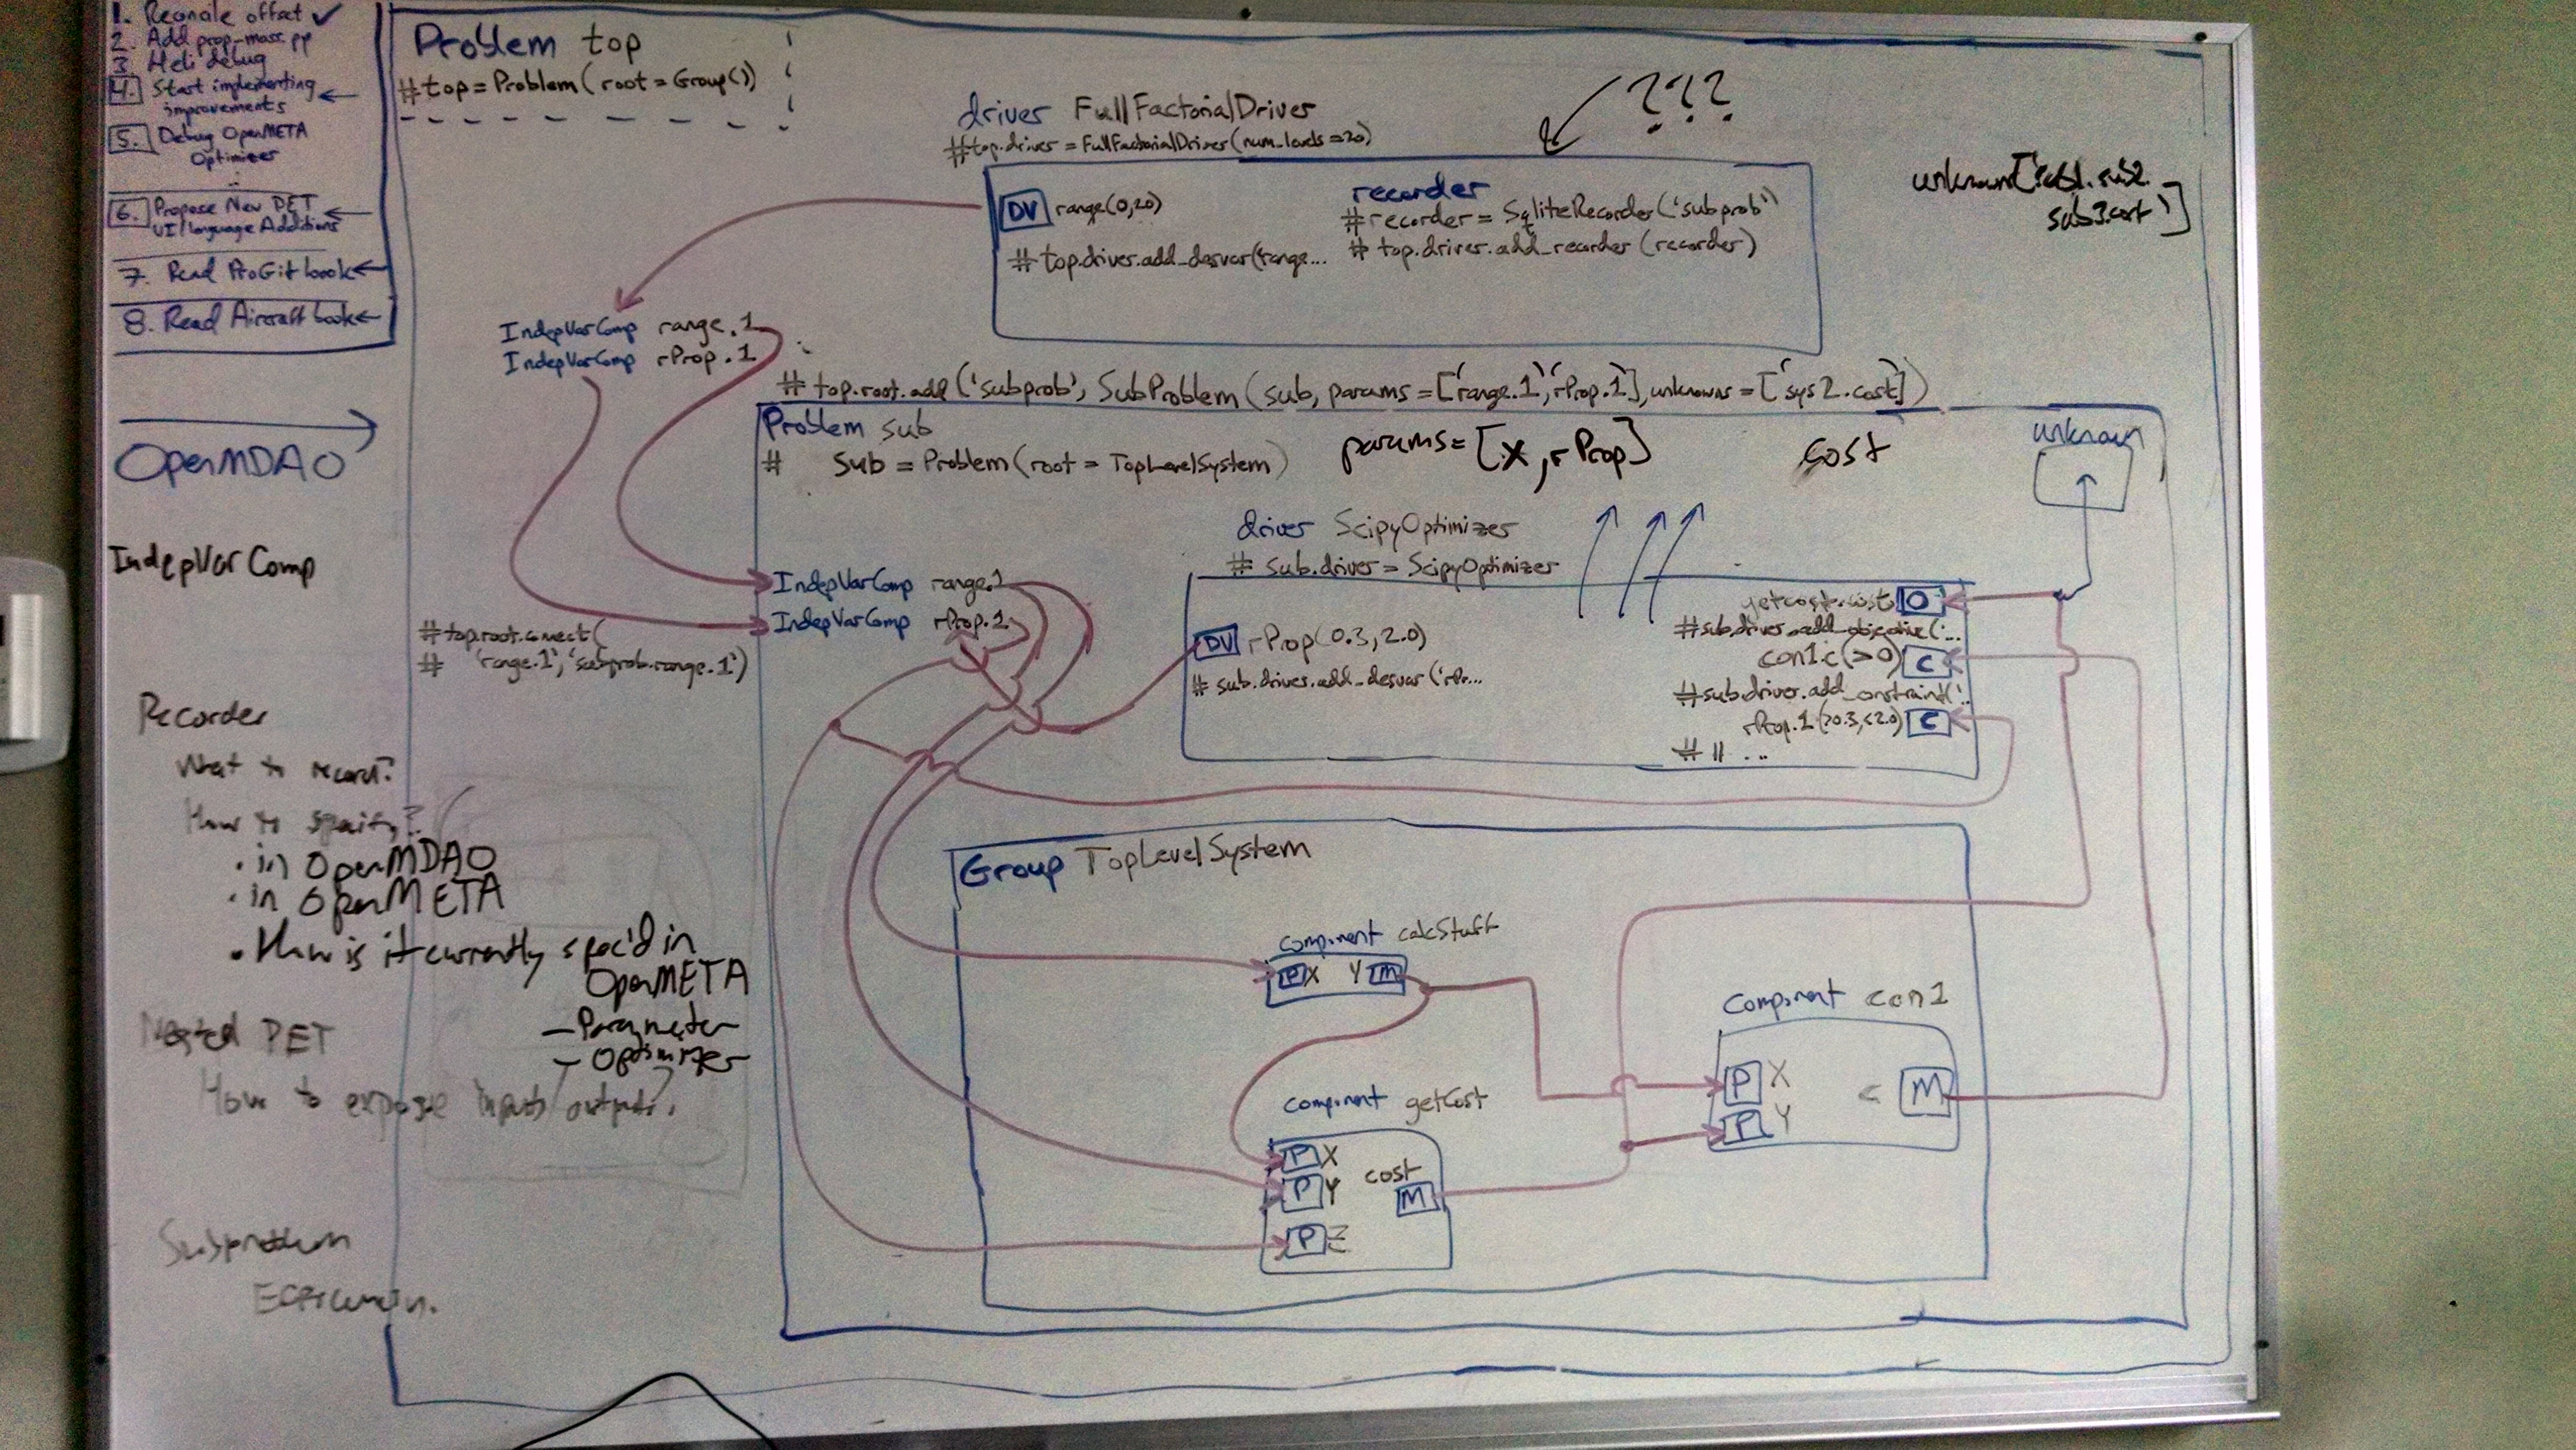 1. Reconcile offset ✓
2. Add prop-mass.py
3 Heli debug
4. Start implementing
improvements
5. Debug OpenMETA
Optimizer
6. Propose New PET
UI/language Additions
7. Read ProGit book
8. Read Aircraft book
OpenMDAO
IndepVarComp
Recorder
What to record?
How to specify?
. in OpenMDAO
. in OpenMETA
. How is it currently spec'd in
OpenMETA
- Parameter
- Optimizer
Nested PET
How to expose inputs/outputs?
Subproblem
Problem top
#top = Problem(root = Group())
driver FullFactorialDriver
#top.driver = FullFactorialDriver(num_levels = 20)
???
DV range(0,20)
#top.driver.add_desvar(range...
recorder
#recorder = SqliteRecorder('subprob')
# top.driver.add_recorder(recorder)
sub3.cost']
IndepVarComp range.1
IndepVarComp rProp.1
# top.root.add('subprob', SubProblem(sub, params = ['range.1','rProp.1'], unknowns = ['sys2.cost'])
Problem sub
# sub = Problem(root = TopLevelSystem)
params = [X, rProp]
cost
unknown
driver ScipyOptimizer
# sub.driver = ScipyOptimizer
IndepVarComp range.1
IndepVarComp rProp.1
#top.root.connect(
# 'range.1', 'subprob.range.1')
DV rProp(0.3, 2.0)
# sub.driver.add_desvar('rPr...
getcost.cost O
#sub.driver.add_objective('...
con1.c (>0) C
#sub.driver.add_constraint('..
rProp.1 (>0.3, <2.0) C
# 11 ...
Group TopLevelSystem
component calcStuff
P X Y M
component getCost
P X
P Y cost M
P Z
Component con1
P X
P Y
c M